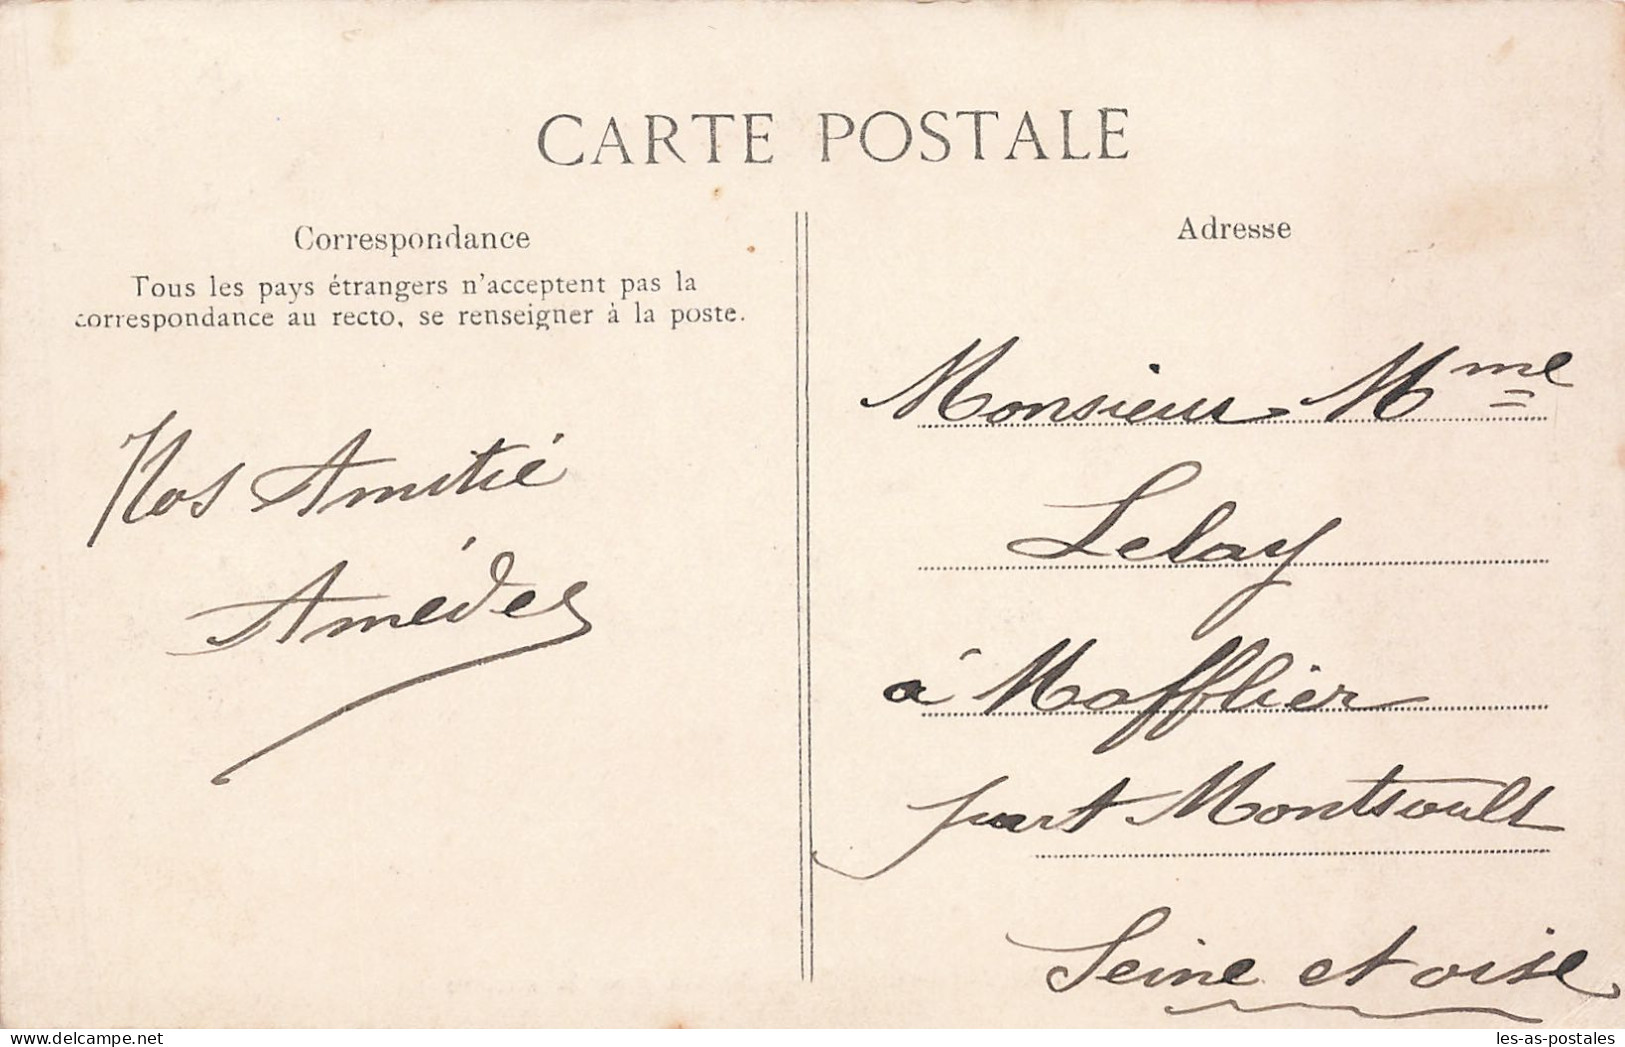 CARTE POSTALE
Correspondance
Tous les pays étrangers n'acceptent pas la
correspondance au recto, se renseigner à la poste.
Nos Amitié
Amédée
Adresse
Monsieur Mme
Lelay
à Mafflier
part Montsoult
Seine et oise
les-as-postales